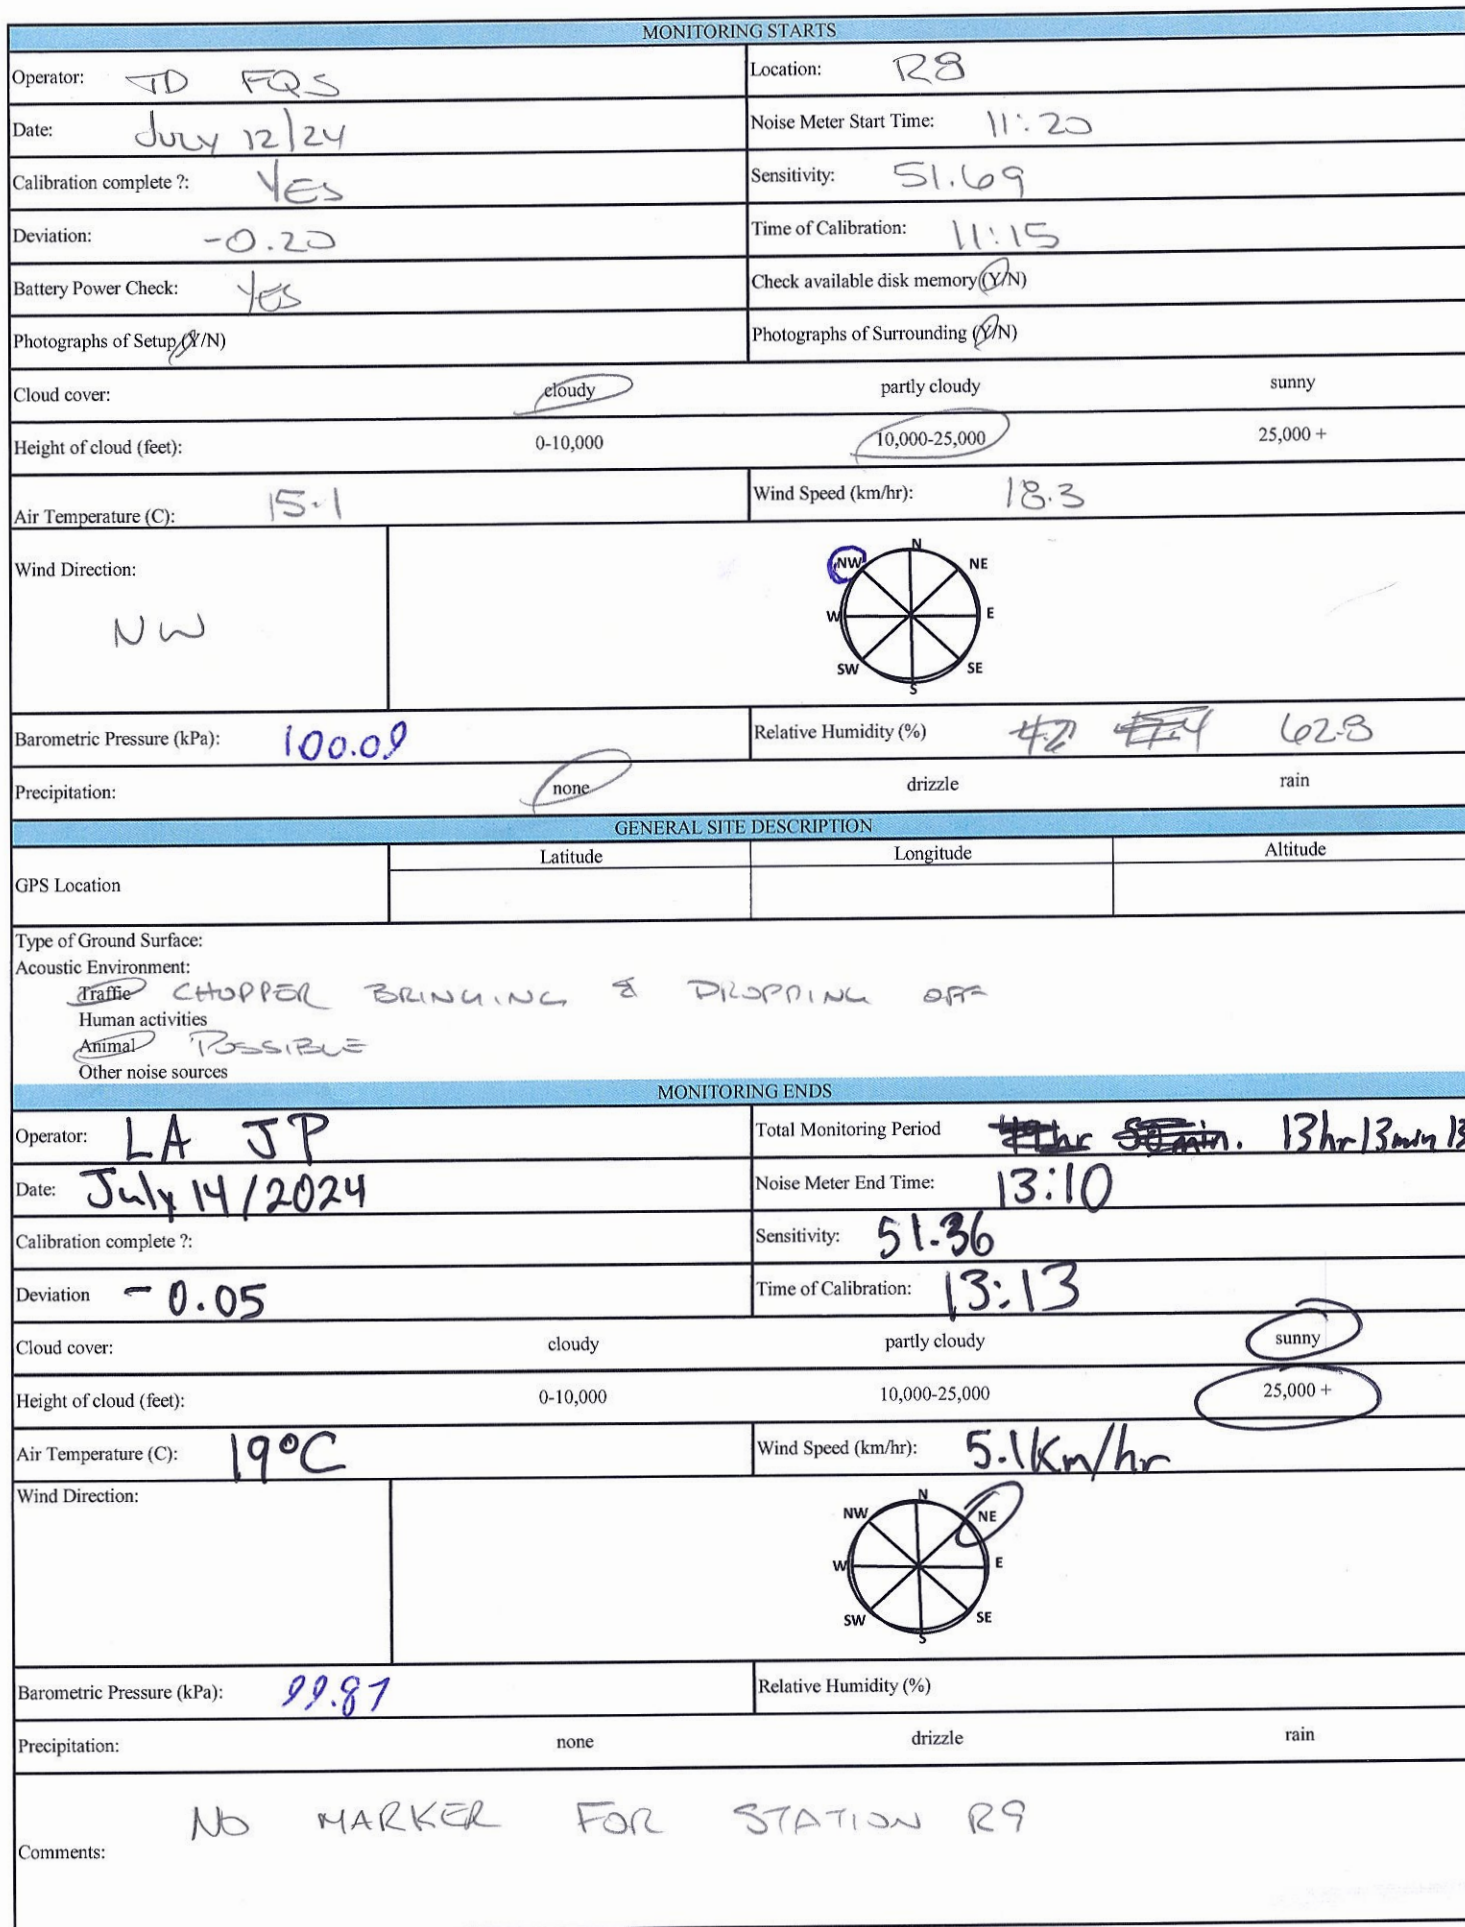 MONITORING STARTS
Operator: TD FQS Location: R8
Date: July 12/24 Noise Meter Start Time: 11:20
Calibration complete ?: YES Sensitivity: 51.69
Deviation: -0.20 Time of Calibration: 11:15
Battery Power Check: YES Check available disk memory (Y/N)
Photographs of Setup (Y/N) Photographs of Surrounding (Y/N)
Cloud cover: cloudy partly cloudy sunny
Height of cloud (feet): 0-10,000 10,000-25,000 25,000 +
Air Temperature (C): 15.1 Wind Speed (km/hr): 18.3
Wind Direction:
NW
N
NW NE
W E
SW SE
S
Barometric Pressure (kPa): 100.09 Relative Humidity (%) 62.8
Precipitation: none drizzle rain
GENERAL SITE DESCRIPTION
Latitude Longitude Altitude
GPS Location
Type of Ground Surface:
Acoustic Environment:
Traffic CHOPPER BRINGING & DROPPING OFF
Human activities
Animal POSSIBLE
Other noise sources
MONITORING ENDS
Operator: LA JP Total Monitoring Period hr min. 13hr 13min 13
Date: July 14/2024 Noise Meter End Time: 13:10
Calibration complete ?: Sensitivity: 51.36
Deviation -0.05 Time of Calibration: 13:13
Cloud cover: cloudy partly cloudy sunny
Height of cloud (feet): 0-10,000 10,000-25,000 25,000 +
Air Temperature (C): 19°C Wind Speed (km/hr): 5.1Km/hr
Wind Direction:
N
NW NE
W E
SW SE
S
Barometric Pressure (kPa): 99.87 Relative Humidity (%)
Precipitation: none drizzle rain
NO MARKER FOR STATION R9
Comments: